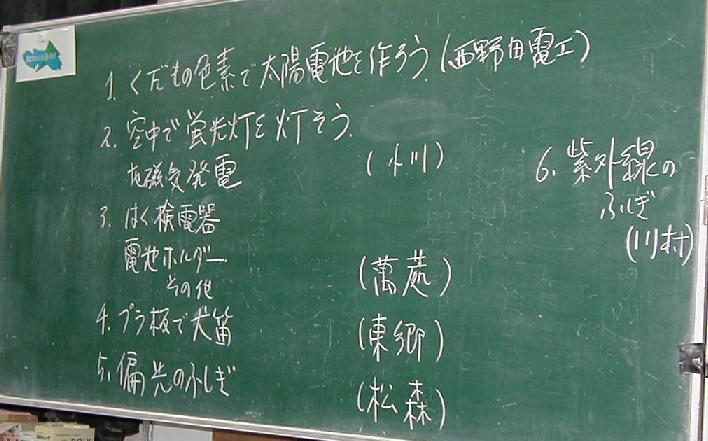 1. くだもの色素で太陽電池を作ろう (西野田電工)
2. 空中で蛍光灯を灯そう
地磁気発電 (小川)
3. はく検電器
電池ホルダー
その他 (萬處)
4. プラ板で犬笛 (東郷)
5. 偏光のふしぎ (松森)
6. 紫外線の
ふしぎ
(川村)